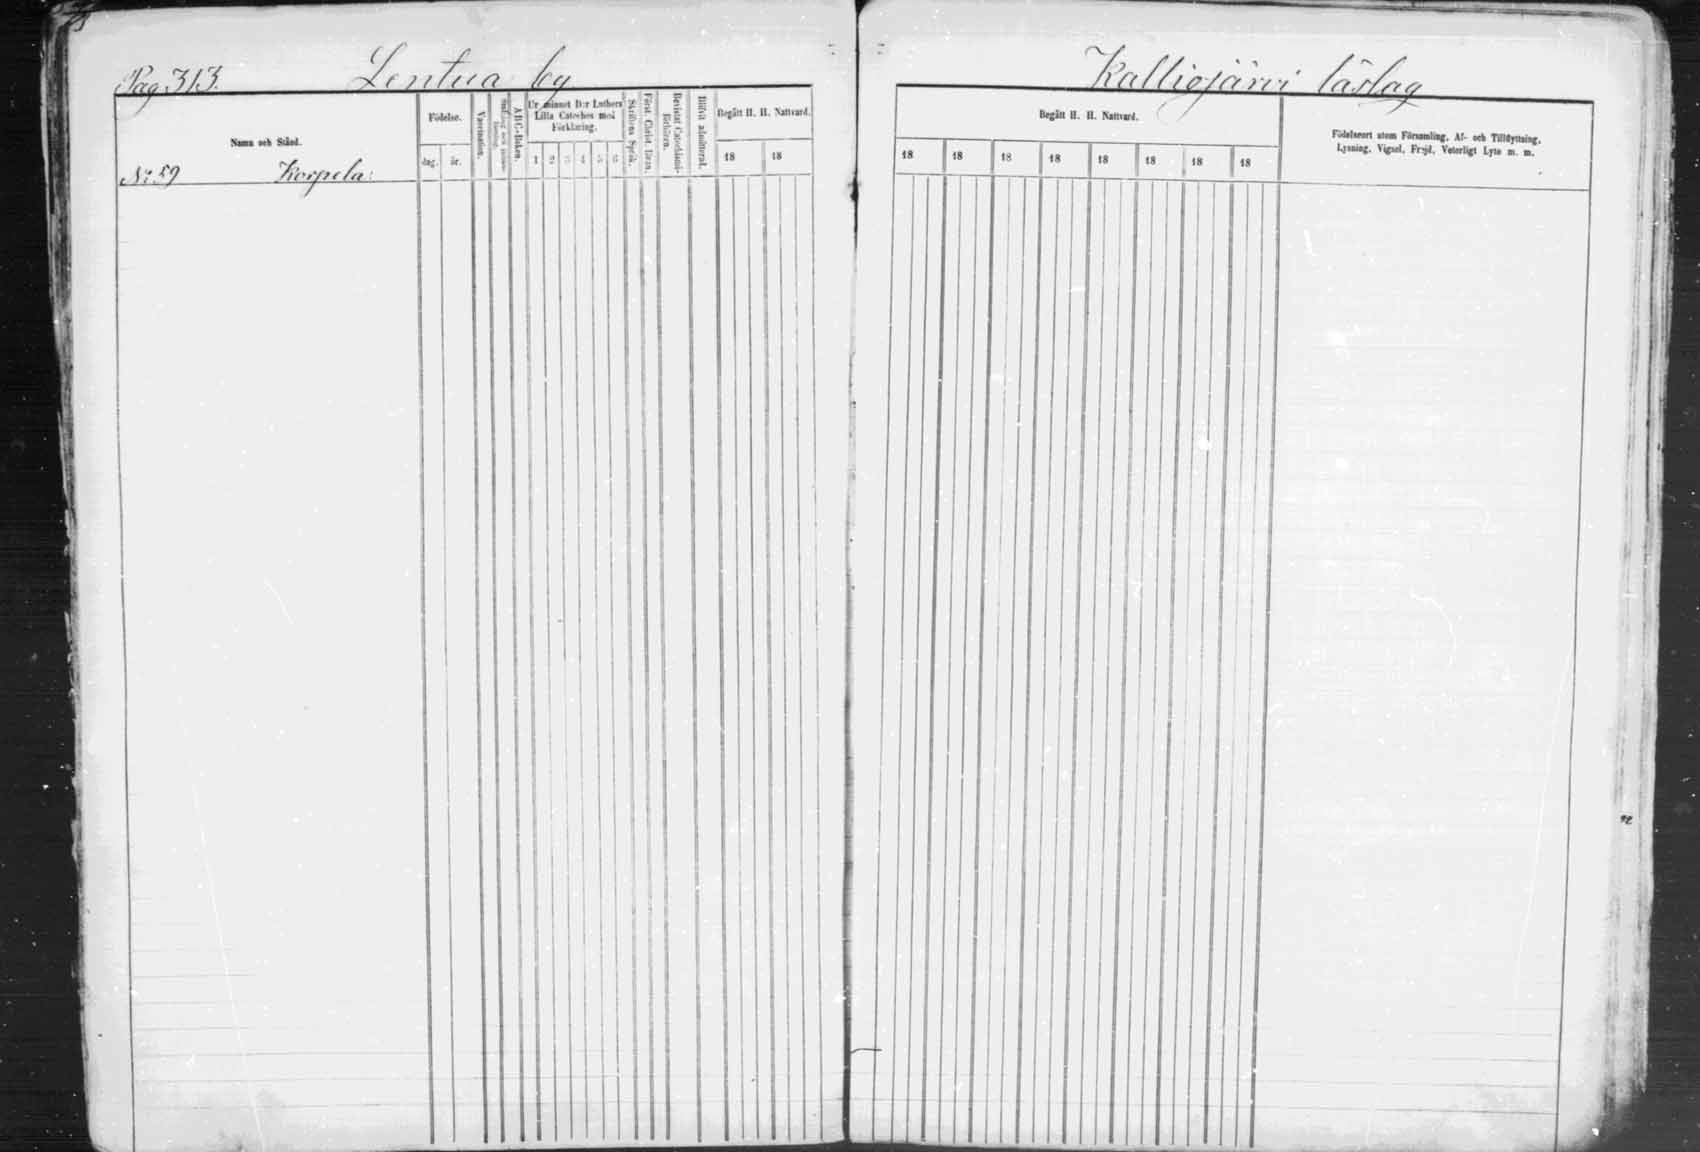 Pag. 313. Lentua by
Namn och Stånd.
Födelse.
dag. år.
Vaccination.
ABC-Boken.
Ur minnet D:r Luthers
Lilla Cateches med
Förklaring.
1 2 3 4 5 6
Skriftens Språk.
Först. Christ. Läran.
Bevistat Catechismi-
förhören.
Blifvit admitterad.
Begått H. H. Nattvard.
18 18
No 59 Korpela.
Kalliojärvi läslag
Begått H. H. Nattvard.
18 18 18 18 18 18 18 18
Födelseort utom Församling, Af- och Tillflyttning,
Lysning, Vigsel, Frejd, Veterligt Lyte m. m.